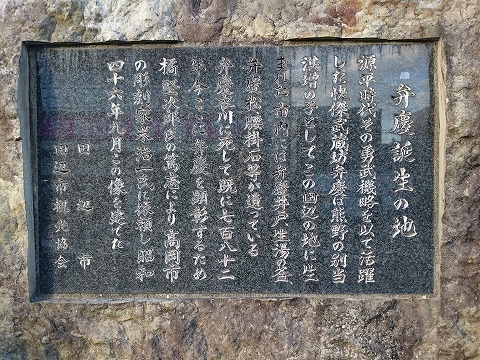 弁慶誕生の地
源平時代その勇武機略を以て活躍
した快傑武蔵坊弁慶は熊野の別当
湛増の子としてこの田辺の地に生
まれた 市内には弁慶井戸 産湯の釜
弁慶松 腰掛石等が遺っている
弁慶衣川に死して既に七百八十二
年 今ここに弁慶を顕彰するため
橘 堅次郎氏の篤志により 高岡市
の彫刻家 浩一氏に依頼し 昭和
四十六年九月この像を建てた
田辺市
田辺市観光協会